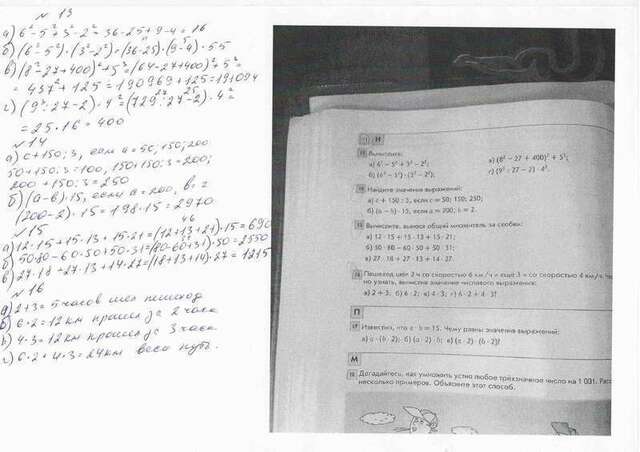 № 13
а) 6² - 5² + 3² - 2² = 36 - 25 + 9 - 4 = 16
б) (6² - 5²) · (3² - 2²) = (36 - 25) · (9 - 4) = 55
в) (8² - 27 + 400)² + 5³ = (64 - 27 + 400)² + 5³ =
= 437² + 125 = 190969 + 125 = 191094
г) (9³ : 27 - 2) · 4² = (729 : 27 - 2) · 4² =
= 25 · 16 = 400
№ 14
а) c + 150 : 3, если c = 50; 150; 200
50 + 150 : 3 = 100, 150 + 150 : 3 = 200;
200 + 150 : 3 = 250
б) (а - в) · 15, если а = 200, в = 2
(200 - 2) · 15 = 198 · 15 = 2970
№ 15
а) 12 · 15 + 15 · 13 + 15 · 21 = (12 + 13 + 21) · 15 = 690
б) 50 · 80 - 60 · 50 + 50 · 31 = (80 - 60 + 31) · 50 = 2550
в) 27 · 18 + 27 · 13 + 14 · 27 = (18 + 13 + 14) · 27 = 1215
№ 16
а) 2 + 3 = 5 часов шел пешеход
б) 6 · 2 = 12 км прошел за 2 часа
в) 4 · 3 = 12 км прошел за 3 часа
г) 6 · 2 + 4 · 3 = 24 км весь путь.
Н
13 Вычислите:
а) 6² - 5² + 3² - 2²; в) (8² - 27 + 400)² + 5³;
б) (6² - 5²) · (3² - 2²); г) (9³ : 27 - 2) · 4².
14 Найдите значения выражений:
а) c + 150 : 3, если c = 50; 150; 250;
б) (a - b) · 15, если a = 200; b = 2.
15 Вычислите, вынося общий множитель за скобки:
а) 12 · 15 + 15 · 13 + 15 · 21;
б) 50 · 80 - 60 · 50 + 50 · 31;
в) 27 · 18 + 27 · 13 + 14 · 27.
16 Пешеход шёл 2 ч со скоростью 6 км/ч и ещё 3 ч со скоростью 4 км/ч.
но узнать, вычислив значение числового выражения:
а) 2 + 3; б) 6 · 2; в) 4 · 3; г) 6 · 2 + 4 · 3?
П
17 Известно, что a · b = 15. Чему равны значения выражений:
а) a · (b · 2); б) (a · 2) · b; в) (a · 2) · (b · 2)?
М
18 Догадайтесь, как умножить устно любое трёхзначное число на 1 001.
несколько примеров. Объясните этот способ.